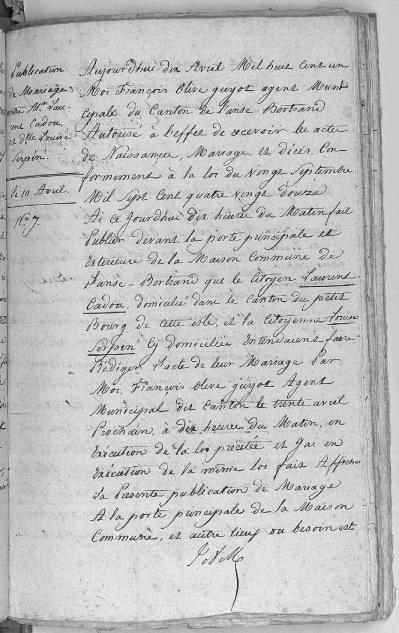 Publication
de Mariage
entre Mr Lau-
rent Cadou,
et dlle Louise
Serpin.
le 10 Avril
No. 7.
Aujourdhui dix Avril Mil huit Cent un
Moi François Olive guyot agent Muni
cipale du Canton de l'anse Bertrand
Autorisé à l'effet de recevoir les actes
de Naissances, Mariage, et décès, Con-
formement à la loi du Vingt Septembre
Mil Sept Cent quatre vingt douze
Ai Ce Jourdhui dix heure du Matin fait
Publier devant la porte principale et
Exterieure de la Maison Commune de
L'anse-Bertrand que le Citoyen Laurent
Cadou, domicilié dans le Canton du petit
Bourg de Cette isle, et la Citoyenne Louise
Serpin Cy domiciliée Entendaient faire
Rédiger l'acte de leur Mariage Par
Moi, François Olive guyot Agent
Municipal dit Canton le trente avril
Prochain, à dix heures du Matin, en
Exécution de la loi précitée et J'ai en
Exécution de la même loi fait Afficher
La Presente publication de Mariage
A la porte principale de la Maison
Commune, et autre lieux ou besoin est